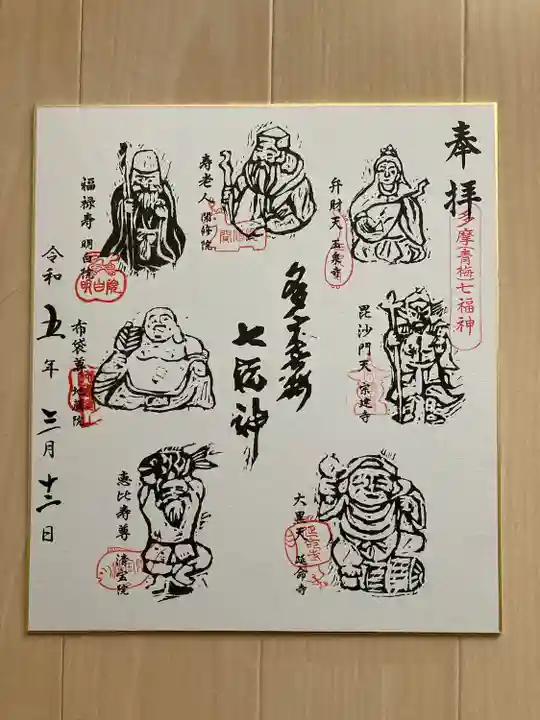 奉拝
多摩青梅七福神
弁財天 玉泉寺
寿老人 聞修院
福禄寿 明白院
明白院
多摩青梅
七福神
毘沙門天 宗建寺
布袋尊 地蔵院
大黒天 延命寺
延命寺
恵比寿尊 清宝院
令和五年三月十二日